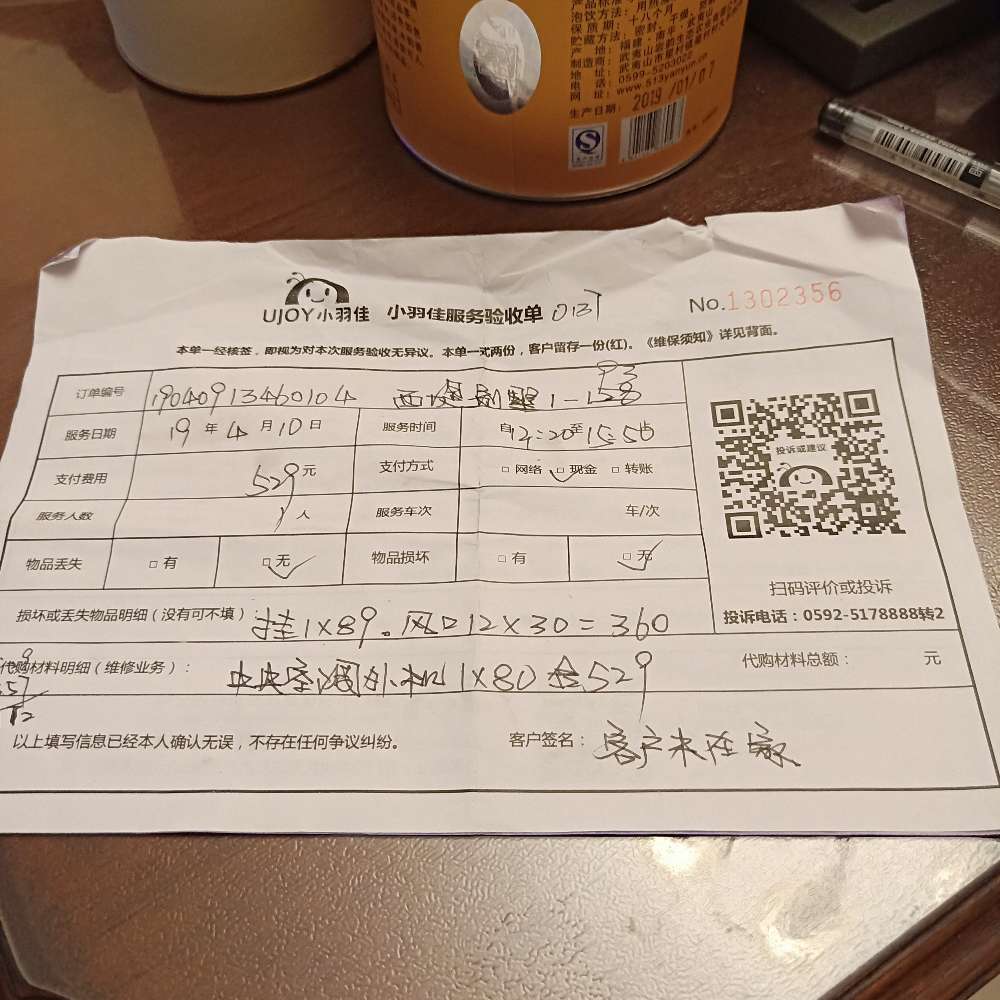 产品标准
泡饮方法：用热
保质期：十八个月
贮藏方法：密封、干燥
产地：福建·南平·武夷山
制造商：武夷山
地址：武夷山市星村镇
电话：0599-5203026
网址：www.513yanyun.cn
生产日期：2019/01/07
UJOY小羽佳 小羽佳服务验收单 No.1302356
本单一经核签，即视为对本次服务验收无异议。本单一式两份，客户留存一份(红)。《维保须知》详见背面。
订单编号 19040913460104 1-1
93
服务日期 19年4月10日 服务时间 自12:20至15:50
支付费用 529元 支付方式 □网络 □现金 □转账
服务人数 1人 服务车次 车/次
物品丢失 □有 □无 物品损坏 □有 □无
投诉或建议
扫码评价或投诉
投诉电话：0592-5178888转2
损坏或丢失物品明细（没有可不填）：挂1×89。风口12×30=360
代购材料明细（维修业务）：中央空调外机1×80合529 代购材料总额： 元
以上填写信息已经本人确认无误，不存在任何争议纠纷。 客户签名：客户未在家